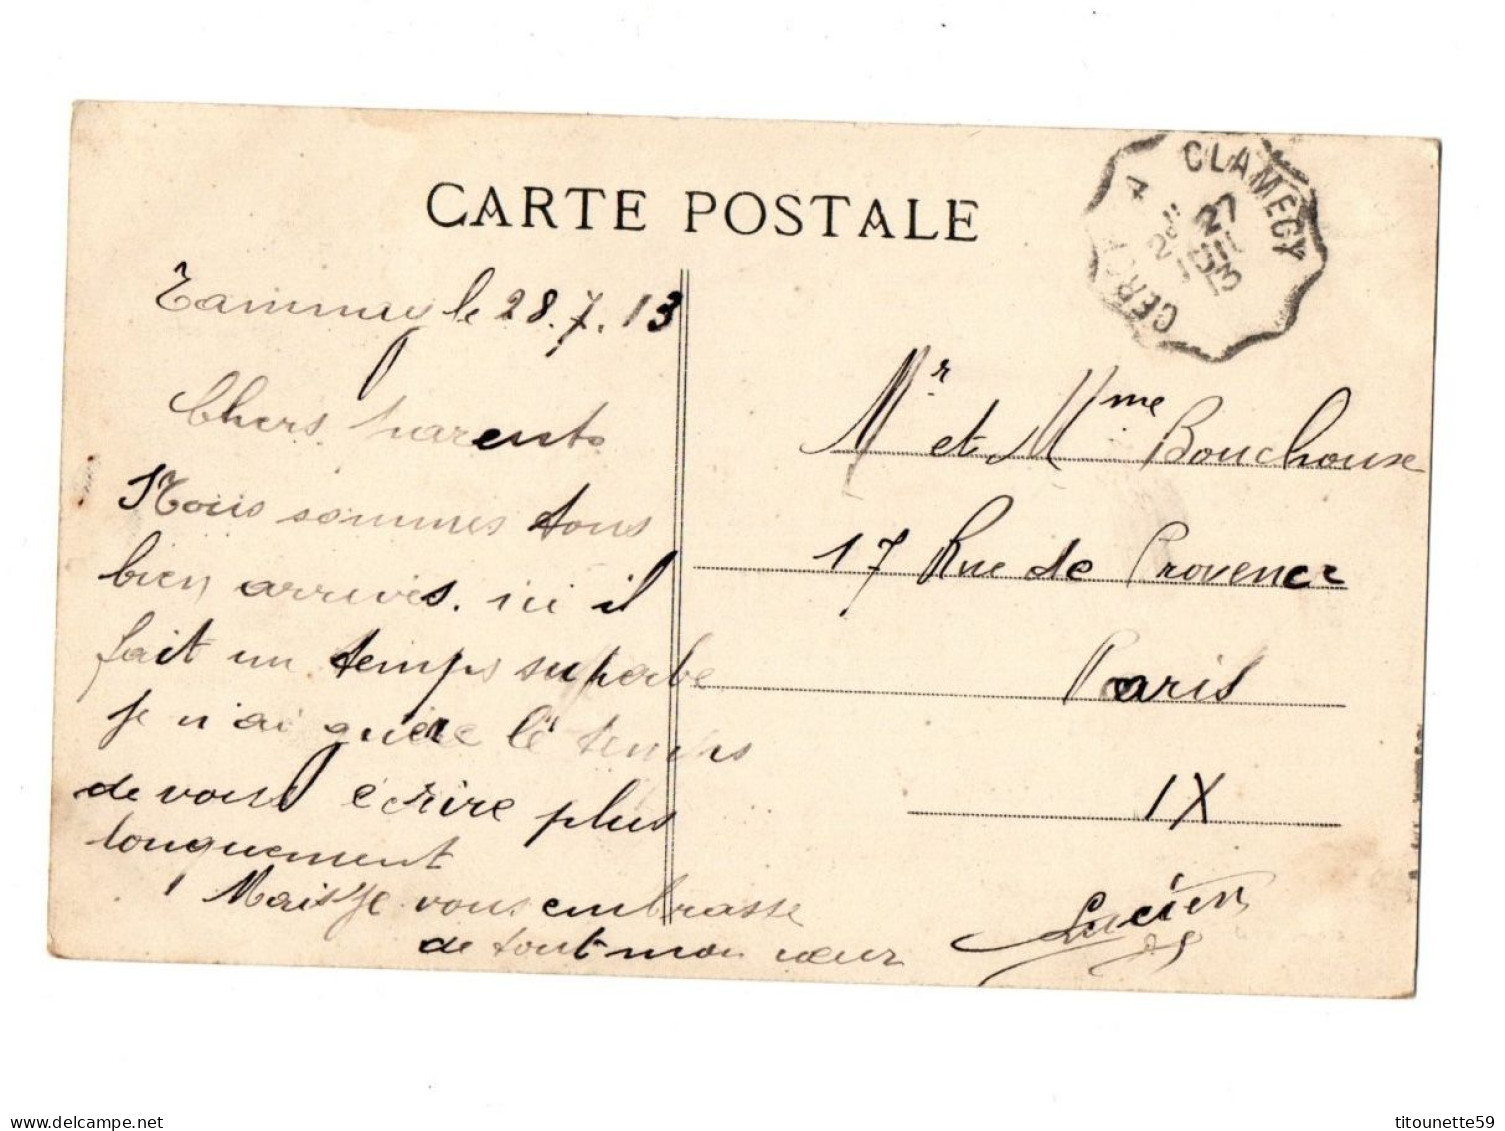 CARTE POSTALE
CLAMECY
CERCY A
27
JUIL
13
Tamnay le 28.7.13
Chers parents
Nous sommes tous
bien arrivés. ici il
fait un temps superbe
je n'ai guère le temps
de vous écrire plus
longuement
Mais je vous embrasse
de tout mon cœur
Lucien
Mr et Mme Bouchouse
17 Rue de Provence
Paris
IX
titounette59